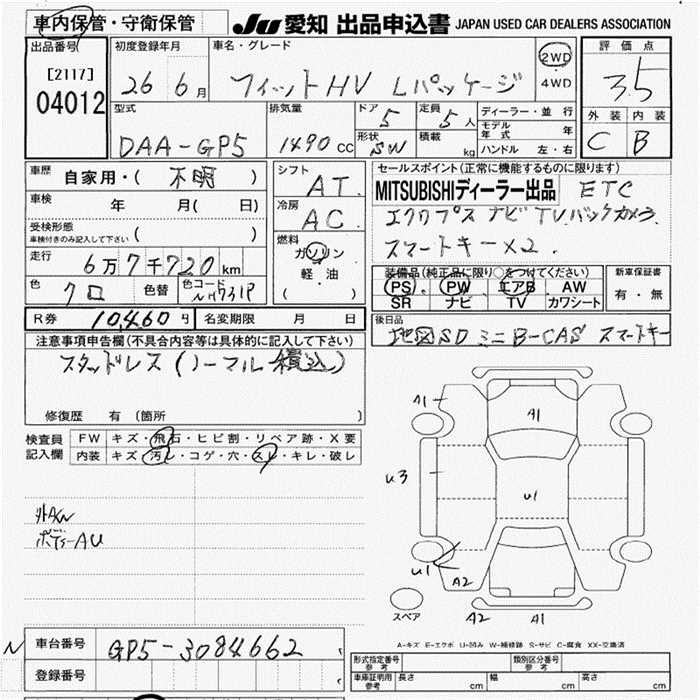 車内保管・守衛保管
JU 愛知 出品申込書 JAPAN USED CAR DEALERS ASSOCIATION
出品番号 初度登録年月 車名・グレード 評価点
[2117] 26 6月 フィットHV Lパッケージ 2WD 3.5
04012 ・4WD
型式 排気量 ドア 定員 ディーラー・並行 外装 内装
5 5人 モデル年式 年 C B
DAA-GP5 1490cc 形状 SW 積載 kg ハンドル 左・右
車歴 自家用・( 不明 ) シフト AT セールスポイント(正常に機能するものに限ります)
車検 年 月( 日) 冷房 AC MITSUBISHIディーラー出品 ETC
受検形態 ( ) エクリプス ナビ TV バックカメラ
車検付きのみ記入して下さい 燃料 スマートキー×2.
走行 6万7千720km ガソリン 装備品(純正品に限り○をつけてください) 新車保証書
軽・油 PS PW エアB AW 有・無
色 クロ 色替 色コード NH731P ( ) SR ナビ TV カワシート
R券 10,460号 名変期限 月 日 後日品
地図SD ミニB-CAS スマートキー
注意事項申告欄(不具合内容等は具体的に記入して下さい)
スタッドレス(ノーマル積込)
修復歴 有 (箇所 )
検査員 FW キズ・飛石・ヒビ割・リペア跡・X要
記入欄 内装 キズ・汚レ・コゲ・穴・スレ・キレ・破レ
A1 A1
U3 U1
外AW
ボディーAU
U1 A2
スペア A2 A1
A-キズ E-エクボ U-凹み W-補修跡 S-サビ C-腐食 XX-交換済
N 車台番号 GP5-3084662
登録番号
形式指定番号 参考 類別区分番号 参考
車庫証明用 参考 長さ cm 幅 cm 高さ cm